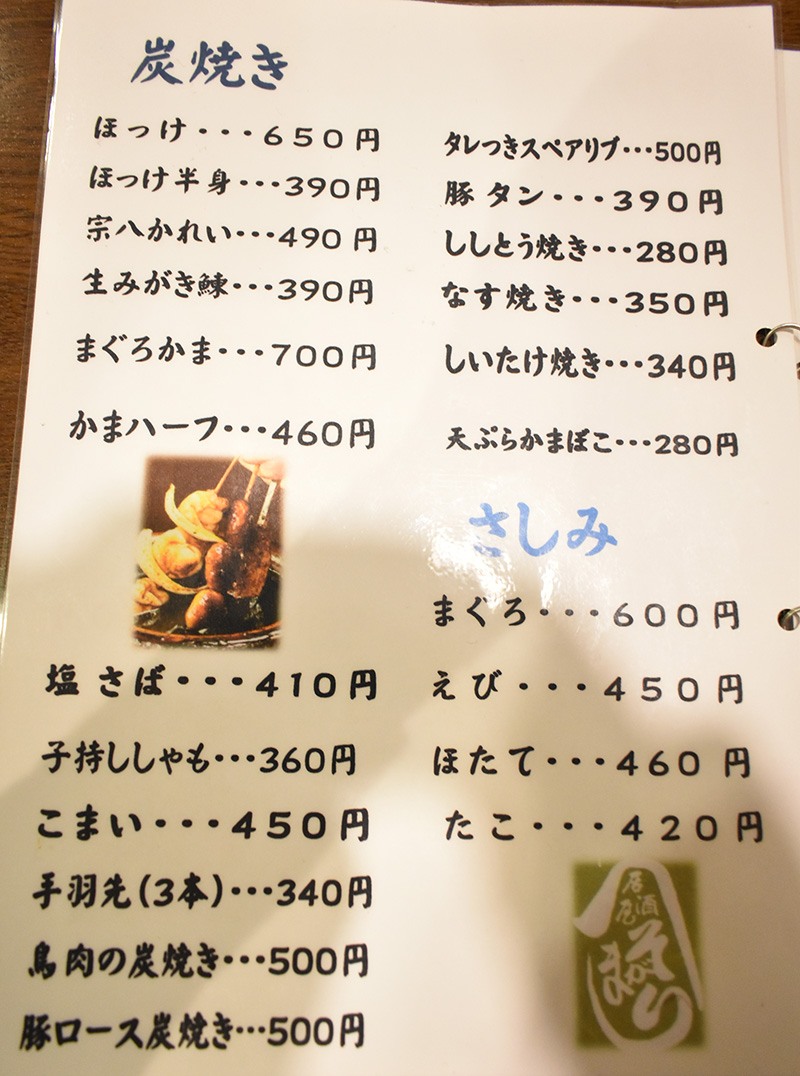 炭焼き
ほっけ・・・650円
ほっけ半身・・・390円
宗八かれい・・・490円
生みがき鰊・・・390円
まぐろかま・・・700円
かまハーフ・・・460円
塩さば・・・410円
子持ししゃも・・・360円
こまい・・・450円
手羽先(3本)・・・340円
鳥肉の炭焼き・・・500円
豚ロース炭焼き・・・500円
タレつきスペアリブ・・・500円
豚タン・・・390円
ししとう焼き・・・280円
なす焼き・・・350円
しいたけ焼き・・・340円
天ぷらかまぼこ・・・280円
さしみ
まぐろ・・・600円
えび・・・450円
ほたて・・・460円
たこ・・・420円
居酒屋